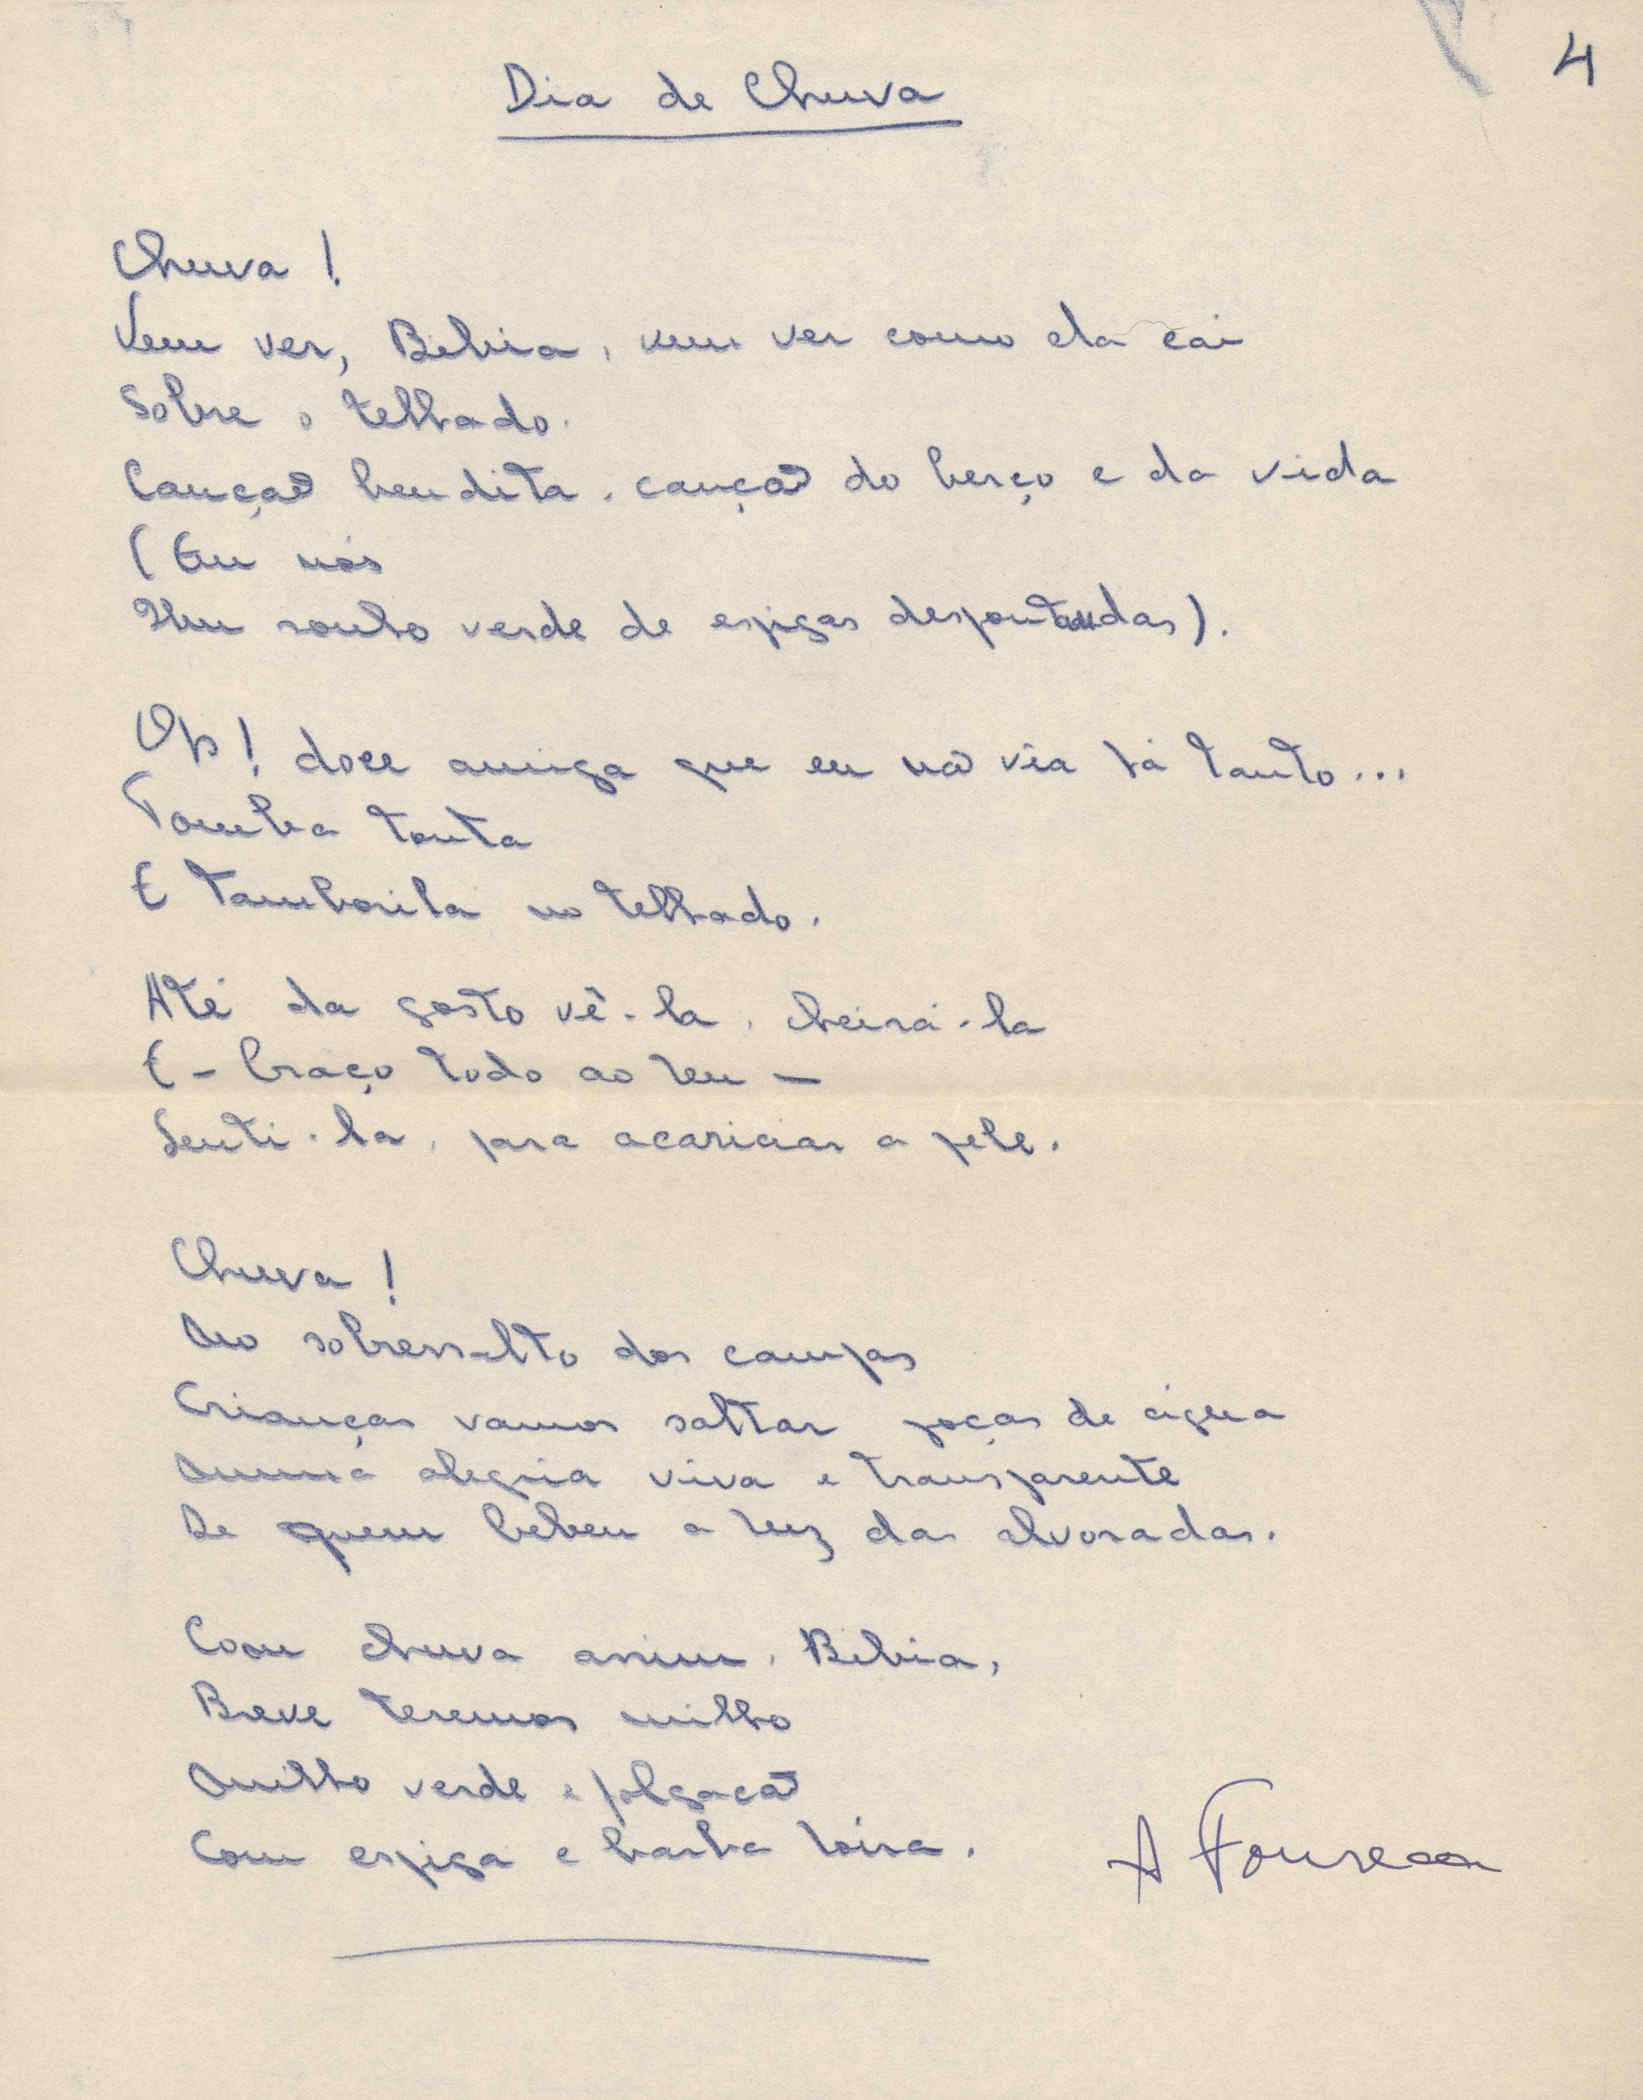 4
Dia de Chuva
Chuva !
Vem ver, Bibia, vem ver como ela cai
Sobre o telhado.
Canção bendita, canção do berço e da vida
( Em nós
Um sonho verde de espigas despontadas).
Oh! doce amiga que eu não via há tanto...
Tomba tonta
E tamborila no telhado.
Até da gosto vê-la, cheirá-la
E - braço todo ao léu -
Senti-la, para acariciar a pele.
Chuva !
Ao sobressalto dos campos
Crianças vamos saltar poças de água
Numa alegria viva e transparente
De quem bebeu a luz das alvoradas.
Com chuva assim, Bibia,
Breve teremos milho
Milho verde e folgação
Com espiga e barba loira.
A Fonseca